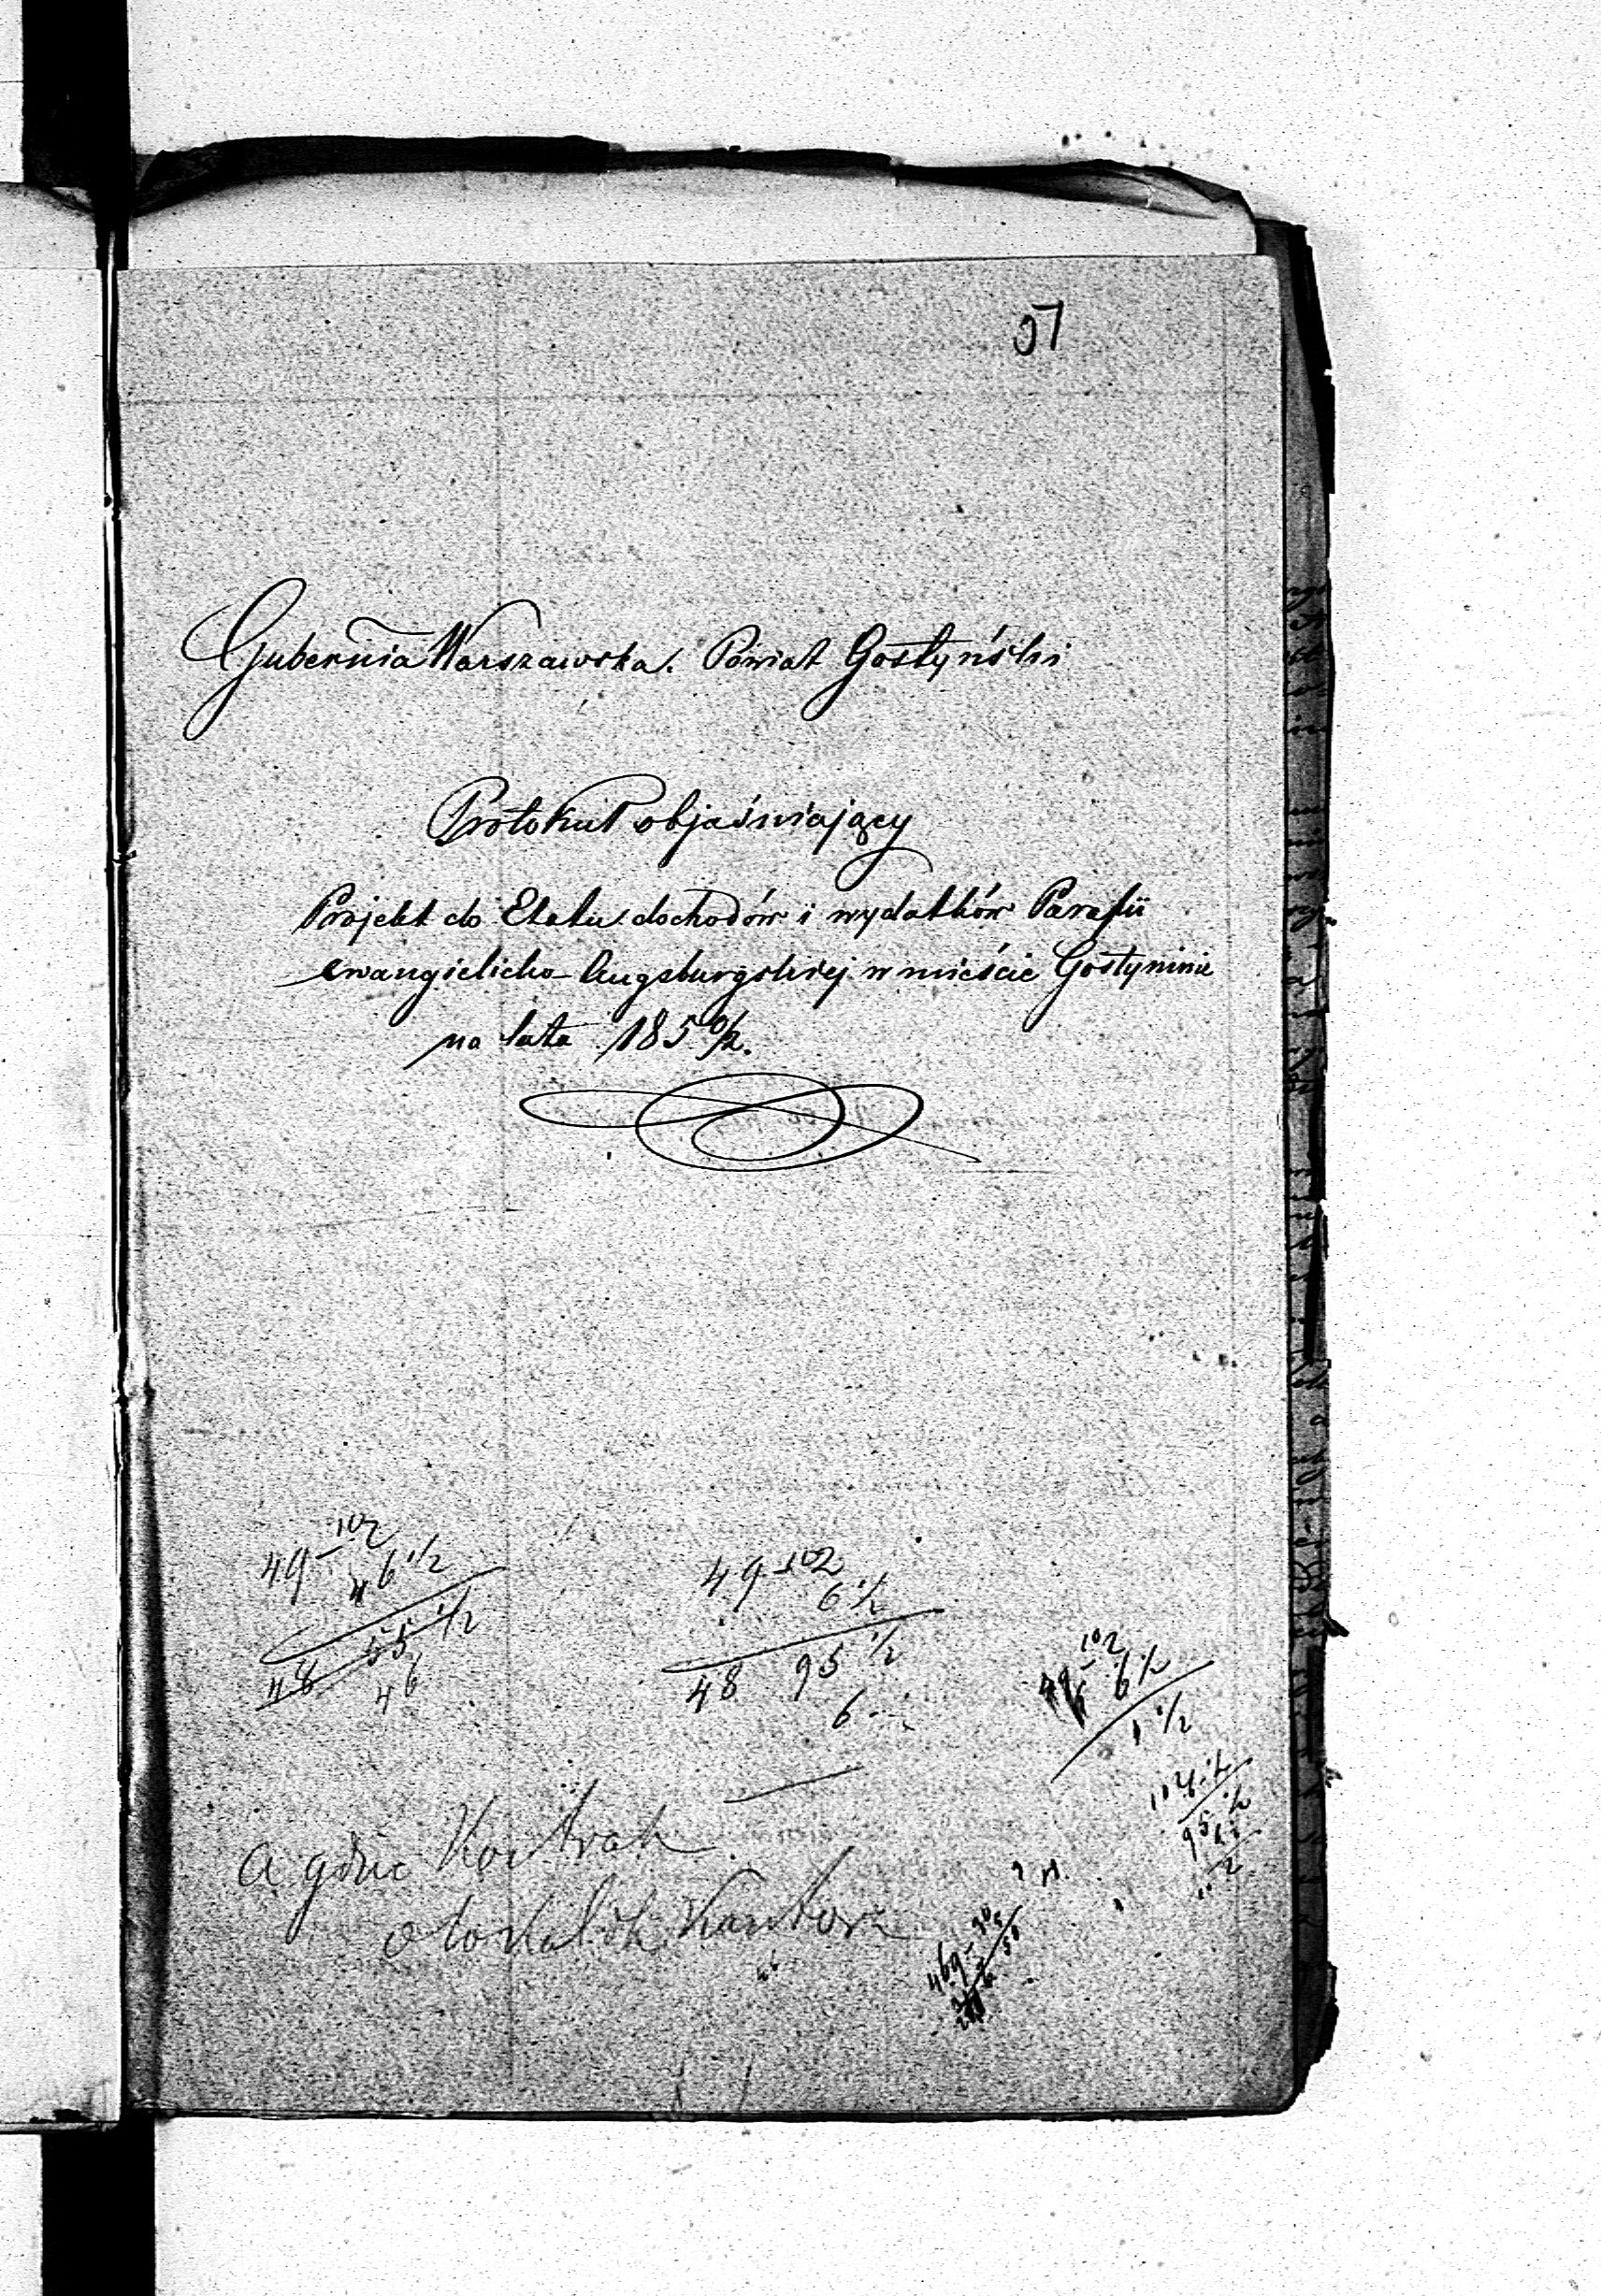 57
Gubernia Warszawska. Powiat Gostyński
Protokuł objaśniający
Projekt do Etatu dochodów i wydatków Parafii
ewangielicko Augsburgskiej w mieście Gostyninie
na lata 185 0/2.
49-102
46 1/2
55 1/2
48
46
49-102
6 1/2
48 95 1/2
6
102
6 1/2
1 1/2
95 1/2
a gdzie
Kantor